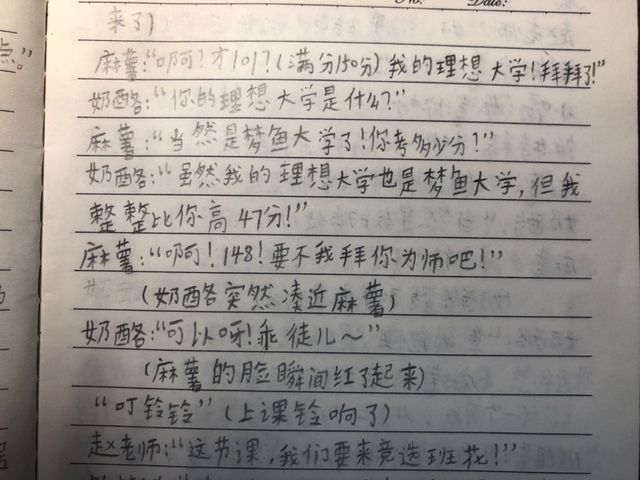 来了)
麻薯:“啊?才101?(满分150分)我的理想大学!拜拜了!”
奶酪:“你的理想大学是什么?”
麻薯:“当然是梦鱼大学了!你考多少分?”
奶酪:“虽然我的理想大学也是梦鱼大学,但我
整整比你高47分!”
麻薯:“啊!148!要不我拜你为师吧!”
(奶酪突然凑近麻薯)
奶酪:“可以呀!乖徒儿~”
(麻薯的脸瞬间红了起来)
“叮铃铃”(上课铃响了)
赵老师:“这节课,我们要来竞选班花!”